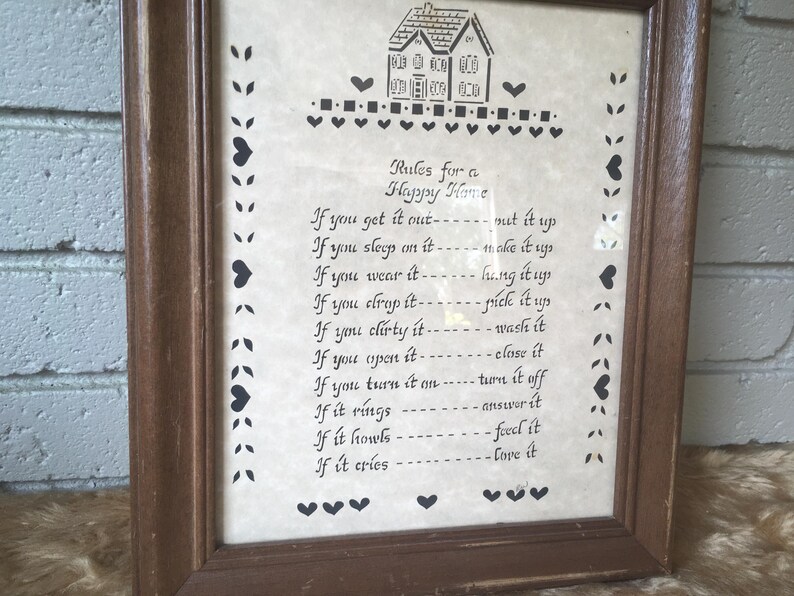 Rules for a
Happy Home
If you get it out------put it up
If you sleep on it------make it up
If you wear it-------hang it up
If you drop it-------pick it up
If you dirty it--------wash it
If you open it---------close it
If you turn it on-----turn it off
If it rings ---------answer it
If it howls -----------feed it
If it cries -----------love it